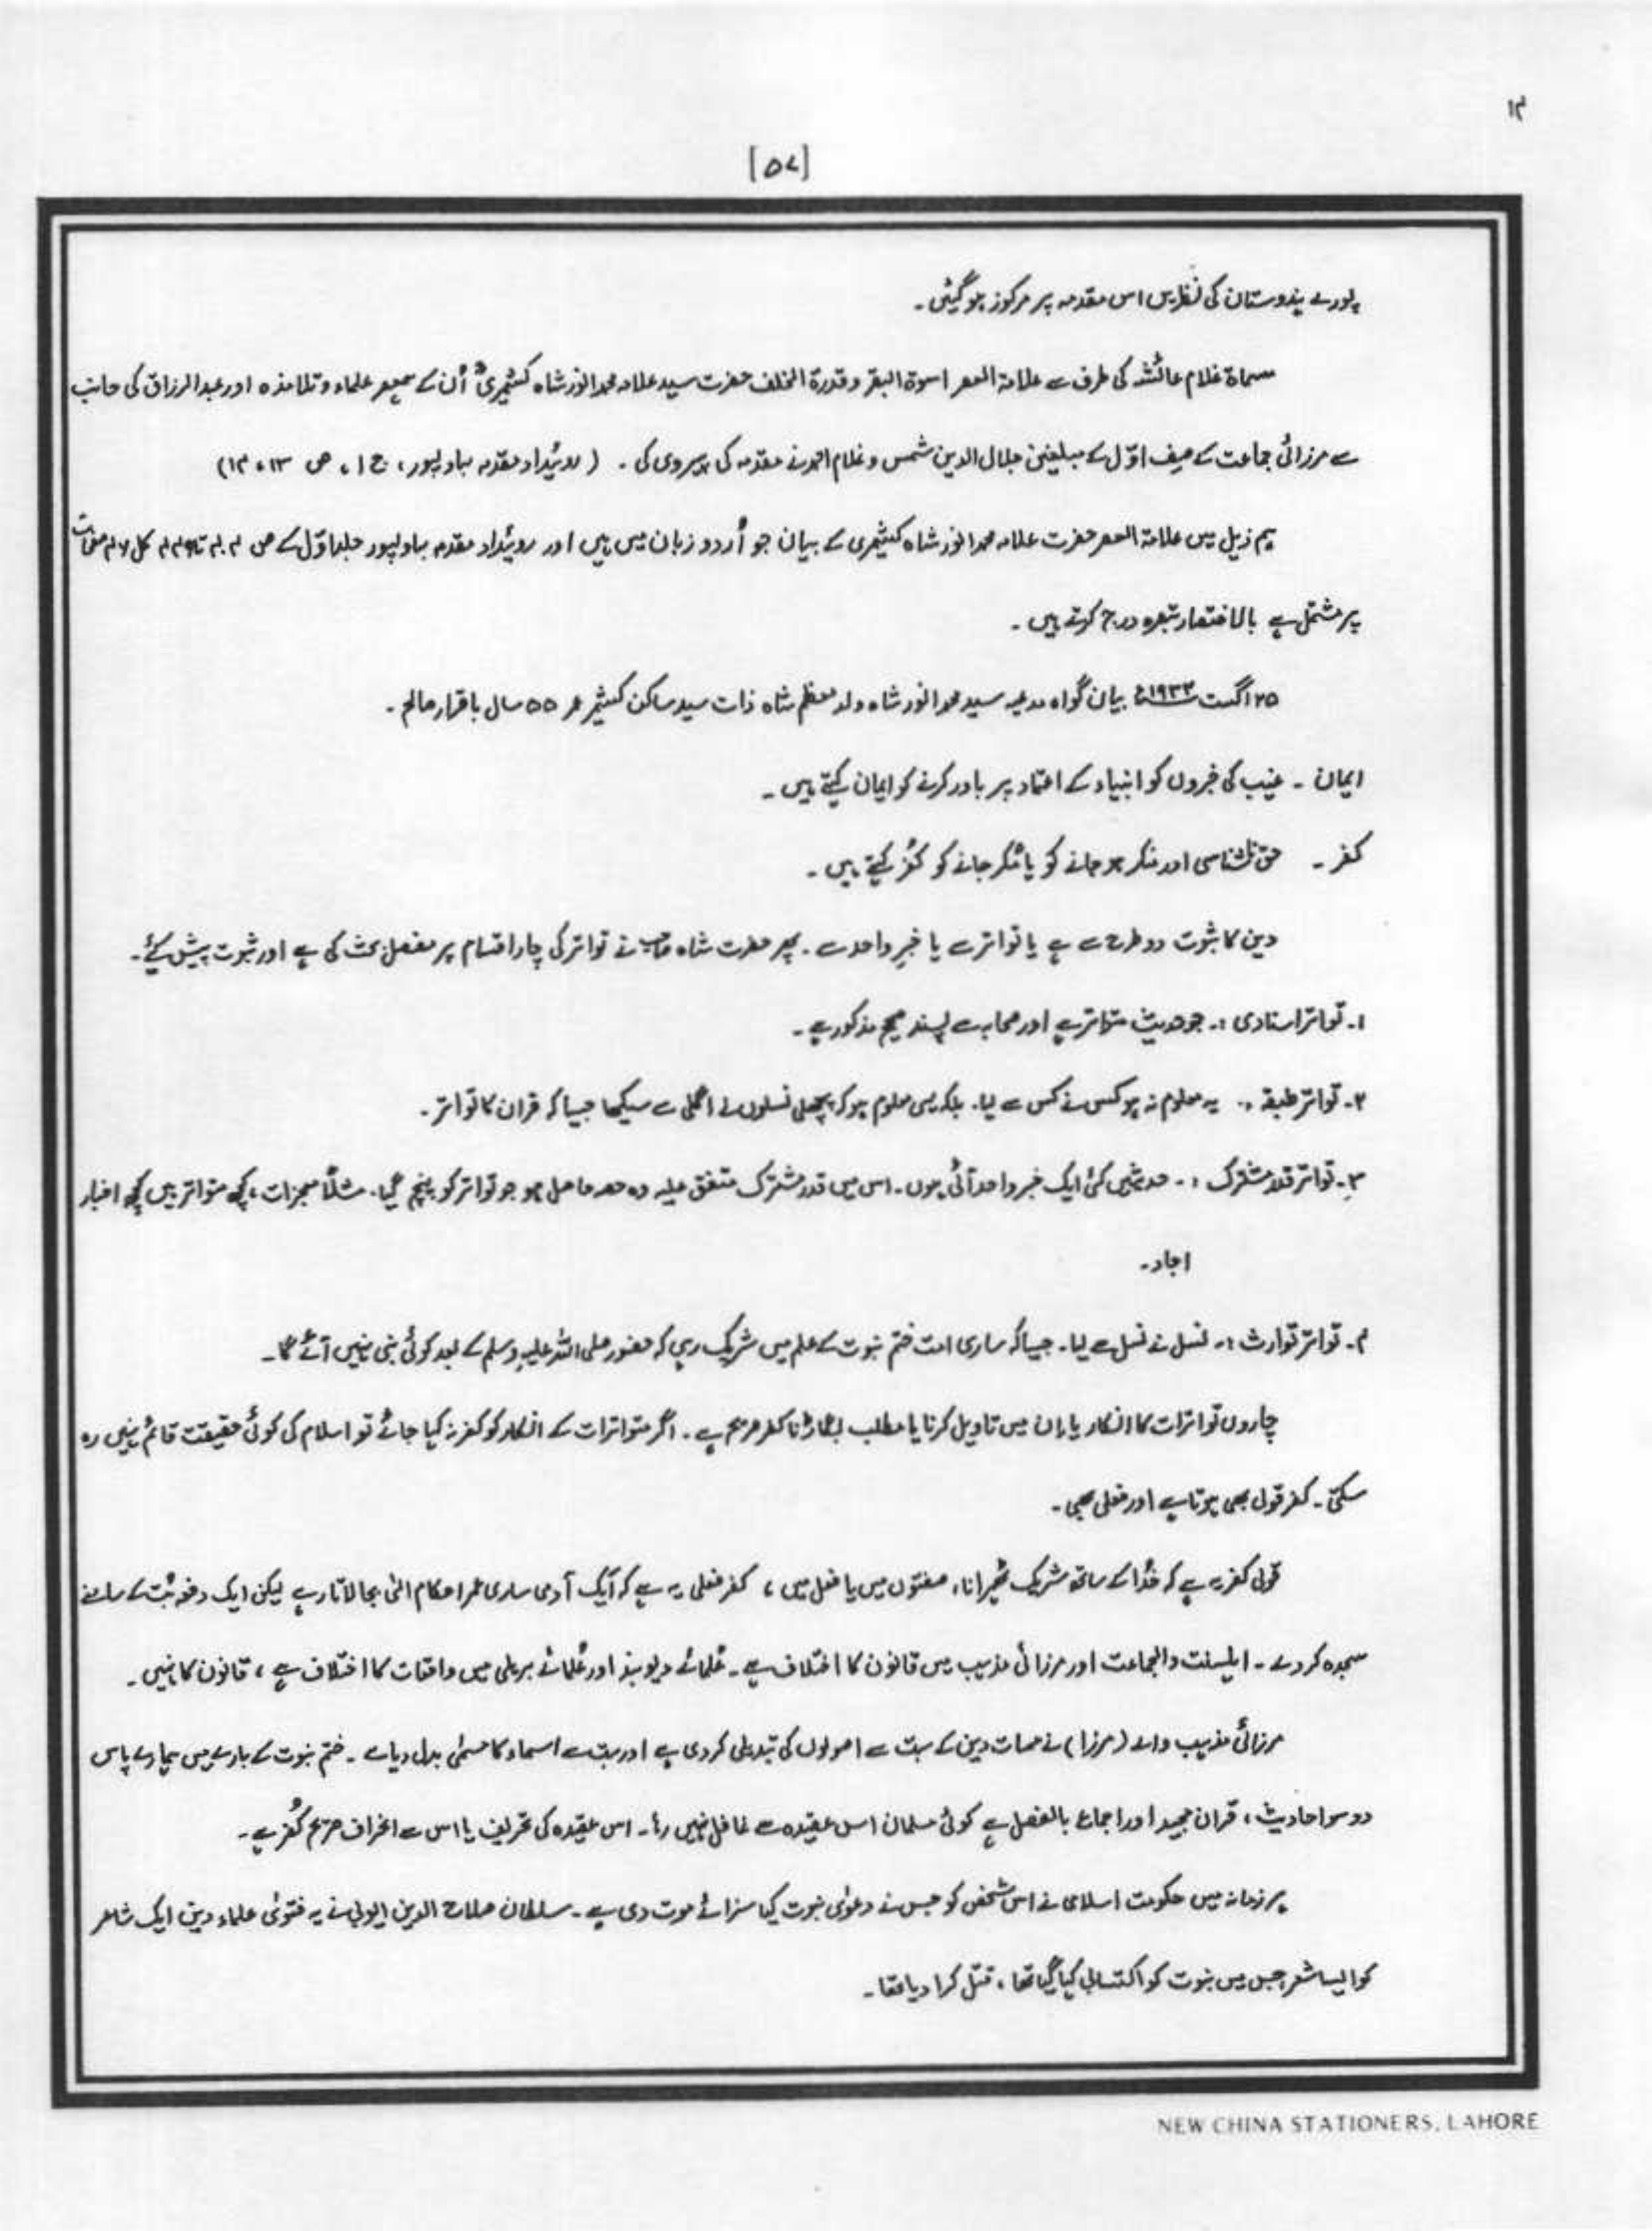 ۱۴
[۵۷]
پورے ہندوستان کی نظریں اس مقدمہ پر مرکوز ہو گئیں۔
مسماۃ غلام عائشہ کی طرف سے علامۃ العصر اسوۃ و قدرۃ الخلف حضرت سید علامہ محمد انور شاہ کشمیریؒ اُن کے ہمعصر علماء و تلامذہ اور عبد الرزاق کی جانب
سے مرزائی جماعت کے صف اوّل کے مبلغین جلال الدین شمس و غلام احمد نے مقدمہ کی پیروی کی۔ (روئیداد مقدمہ بہاولپور، ج ۱، ص ۱۳، ۱۴)
ہم ذیل میں علامۃ العصر حضرت علامہ محمد انور شاہ کشمیری کے بیان جو اُردو زبان میں ہیں اور روئیداد مقدمہ بہاولپور جلد اوّل کے ص کل صفحات
پر مشتمل ہے بالاختصار تبصرہ درج کرتے ہیں۔
۲۵ اگست ۱۹۳۲ء بیان گواہ مدعیہ سید محمد انور شاہ ولد معظم شاہ ذات سید ساکن کشمیر عمر ۵۵ سال باقرار صالح۔
ایمان ۔ غیب کی خبروں کو انبیاء کے اعتماد پر باور کرنے کو ایمان کہتے ہیں۔
کفر ۔ حق ناشناسی اور منکر ہو جانے کو یا مُکر جانے کو کفر کہتے ہیں۔
دین کا ثبوت دو طرح سے ہے یا تواتر سے یا خبرِ واحد سے۔ پھر حضرت شاہ صاحب نے تواتر کی چار اقسام پر مفصل بحث کی ہے اور ثبوت پیش کیے۔
۱۔ تواتر اسنادی :۔ جو حدیث متواتر ہے اور صحابہ سے بسند صحیح مذکور ہے۔
۲۔ تواتر طبقہ :۔ یہ معلوم نہ ہو کس نے کس سے لیا۔ بلکہ یہی معلوم ہو کہ پچھلی نسلوں نے اگلی سے سیکھا جیسا کہ قران کا تواتر۔
۳۔ تواتر قدر مشترک :۔ حدیثیں کئی ایک خبر واحد آئی ہوں۔ اس میں قدر مشترک متفق علیہ وہ حصہ حاصل ہو جو تواتر کو پہنچ گیا۔ مثلاً معجزات، کچھ متواتر ہیں کچھ اخبار
احاد۔
۴۔ تواتر توارث :۔ نسل نے نسل سے لیا۔ جیسا کہ ساری امت ختم نبوت کے علم میں شریک رہی کہ حضور صلی اللہ علیہ وسلم کے بعد کوئی نبی نہیں آئے گا۔
چاروں تواترات کا انکار یا ان میں تاویل کرنا یا مطلب بگاڑنا کفر صریح ہے۔ اگر متواترات کے انکار کو کفر نہ کیا جائے تو اسلام کی کوئی حقیقت قائم نہیں رہ
سکتی۔ کفر قولی بھی ہوتا ہے اور فعلی بھی۔
قولی کفر یہ ہے کہ خُدا کے ساتھ شریک ٹھہرانا، صفتوں میں یا فعل میں، کفر فعلی یہ ہے کہ ایک آدمی ساری عمر احکام الٰہی بجا لاتا رہے لیکن ایک دفعہ بُت کے سامنے
سجدہ کر دے۔ اہلسنت والجماعت اور مرزائی مذہب میں قانون کا اختلاف ہے۔ عُلمائے دیوبند اور عُلمائے بریلی میں واقعات کا اختلاف ہے، قانون کا نہیں۔
مرزائی مذہب والے (مرزا) نے مہمات دین کے بہت سے اصولوں کی تبدیلی کر دی ہے اور بہت سے اسماء کا مسمٰی بدل دیا ہے۔ ختم نبوت کے بارے میں ہمارے پاس
دو سو احادیث، قران مجید اور اجماع بالفصل ہے کوئی مسلمان اس عقیدہ سے غافل نہیں رہا۔ اس عقیدہ کی تحریف یا اس سے انحراف صریح کُفر ہے۔
ہر زمانہ میں حکومت اسلامی نے اس شخص کو جس نے دعوٰی نبوت کیا سزائے موت دی ہے۔ سلطان صلاح الدین ایوبی نے بہ فتوٰی علماء دین ایک شاعر
کو ایسا شعر جس میں نبوت کو اکتسابی کہا گیا تھا، قتل کرا دیا تھا۔
NEW CHINA STATIONERS, LAHORE